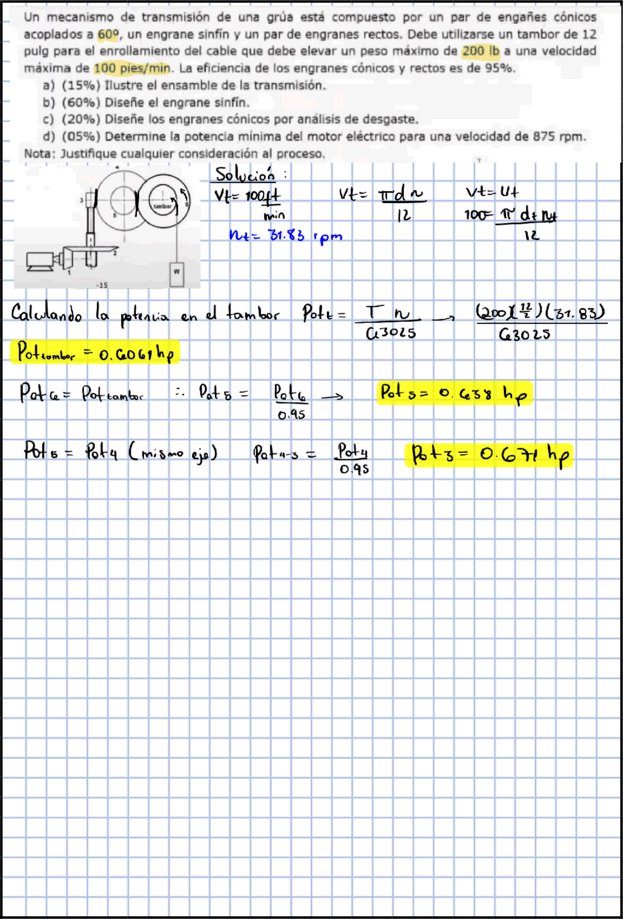 Un mecanismo de transmisión de una grúa está compuesto por un par de engañes cónicos
acoplados a 60º, un engrane sinfín y un par de engranes rectos. Debe utilizarse un tambor de 12
pulg para el enrollamiento del cable que debe elevar un peso máximo de 200 lb a una velocidad
máxima de 100 pies/min. La eficiencia de los engranes cónicos y rectos es de 95%.
a) (15%) Ilustre el ensamble de la transmisión.
b) (60%) Diseñe el engrane sinfín.
c) (20%) Diseñe los engranes cónicos por análisis de desgaste.
d) (05%) Determine la potencia mínima del motor eléctrico para una velocidad de 875 rpm.
Nota: Justifique cualquier consideración al proceso.
Solución :
Vt= 100 ft/min Vt= π d n / 12 Vt= Vt
nt= 31.83 rpm 100= π dt nt / 12
3 5 tambor 6
W
1 2
-15
Calculando la potencia en el tambor Pot t = T n / 63025 → (200)(12/2)(31.83) / 63025
Pot tambor = 0.6061 hp
Pot 6 = Pot tambor ∴ Pot 5 = Pot 6 / 0.95 → Pot 5 = 0.638 hp
Pot 5 = Pot 4 (mismo eje) Pot 4-3 = Pot 4 / 0.95 Pot 3 = 0.671 hp